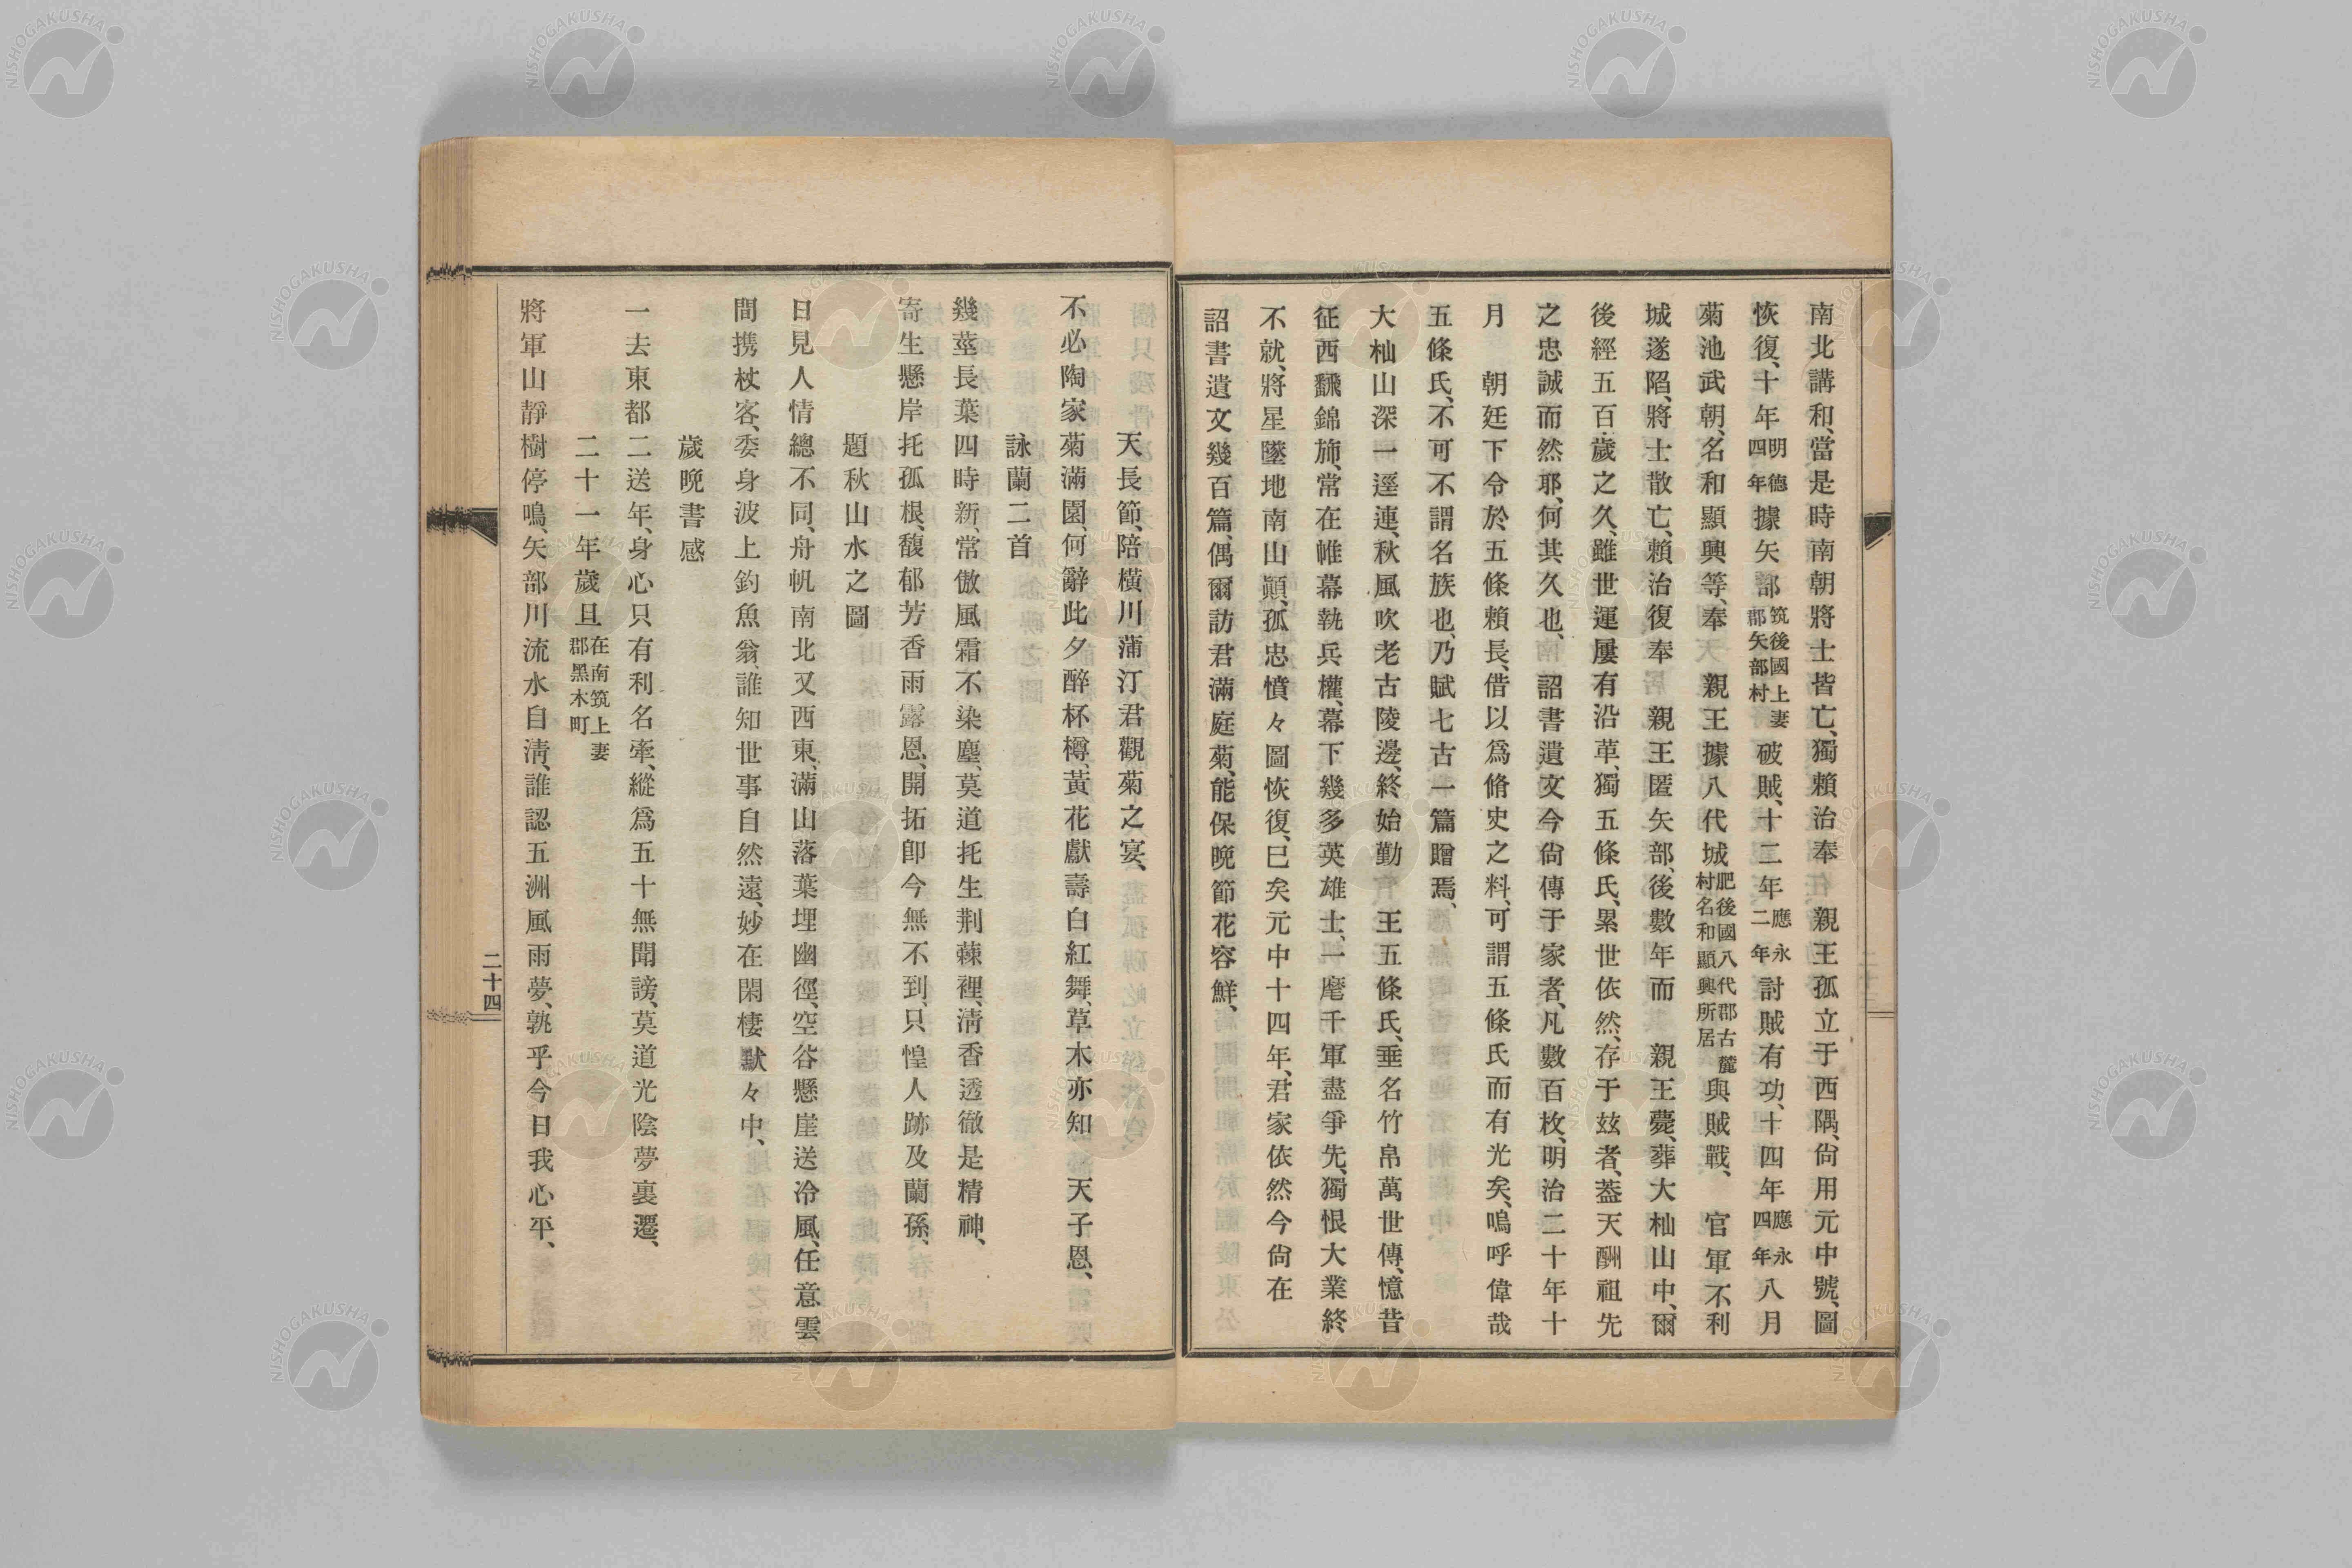 南北講和、當是時南朝將士皆亡、獨賴治奉　親王孤立于西隅、尙用元中號、圖
恢復、十年明德四年據矢部筑後國上妻郡矢部村破賊、十二年應永二年討賊有功、十四年應永四年八月
菊池武朝、名和顯興等、奉　親王據八代城肥後國八代郡古麓村名和顯興所居與賊戰、　官軍不利
城遂陷、將士散亡、賴治復奉　親王匿矢部、後數年而　親王薨、葬大杣山中、爾
後經五百歲之久、雖世運屢有沿革、獨五條氏、累世依然、存于玆者、葢天酬祖先
之忠誠而然耶、何其久也、　詔書遺文今尙傳于家者、凡數百枚、明治二十年十
月　朝廷下令於五條賴長、借以爲脩史之料、可謂五條氏而有光矣、嗚呼偉哉
五條氏、不可不謂名族也、乃賦七古一篇贈焉、
大杣山深一逕連、秋風吹老古陵邊、終始勤　王五條氏、垂名竹帛萬世傳、憶昔
征西飜錦旆、常在帷幕執兵權、幕下幾多英雄士、一麾千軍盡爭先、獨恨大業終
不就、將星墜地南山顚、孤忠憤々圖恢復、已矣元中十四年、君家依然今尙在
詔書遺文幾百篇、偶爾訪君滿庭菊、能保晚節花容鮮、
天長節、陪橫川蒲汀君觀菊之宴、
不必陶家菊滿園、何辭此夕醉杯樽、黃花獻壽白紅舞、草木亦知天子恩、
詠蘭二首
幾莖長葉四時新、常傲風霜不染塵、莫道托生荆蕀裡、淸香透徹是精神、
寄生懸岸托孤根、馥郁芳香雨露恩、開拓卽今無不到、只惶人跡及蘭孫、
題秋山水之圖
日見人情總不同、舟帆南北又西東、滿山落葉埋幽徑、空谷懸崖送冷風、任意雲
間携杖客、委身波上釣魚翁、誰知世事自然遠、妙在閑棲默々中、
歲晚書感
一去東都二送年、身心只有利名牽、縱爲五十無聞謗、莫道光陰夢裏遷、
二十一年歲旦在南筑上妻郡黑木町
將軍山靜樹停鳴、矢部川流水自淸、誰認五洲風雨夢、孰乎今日我心平、
二十四